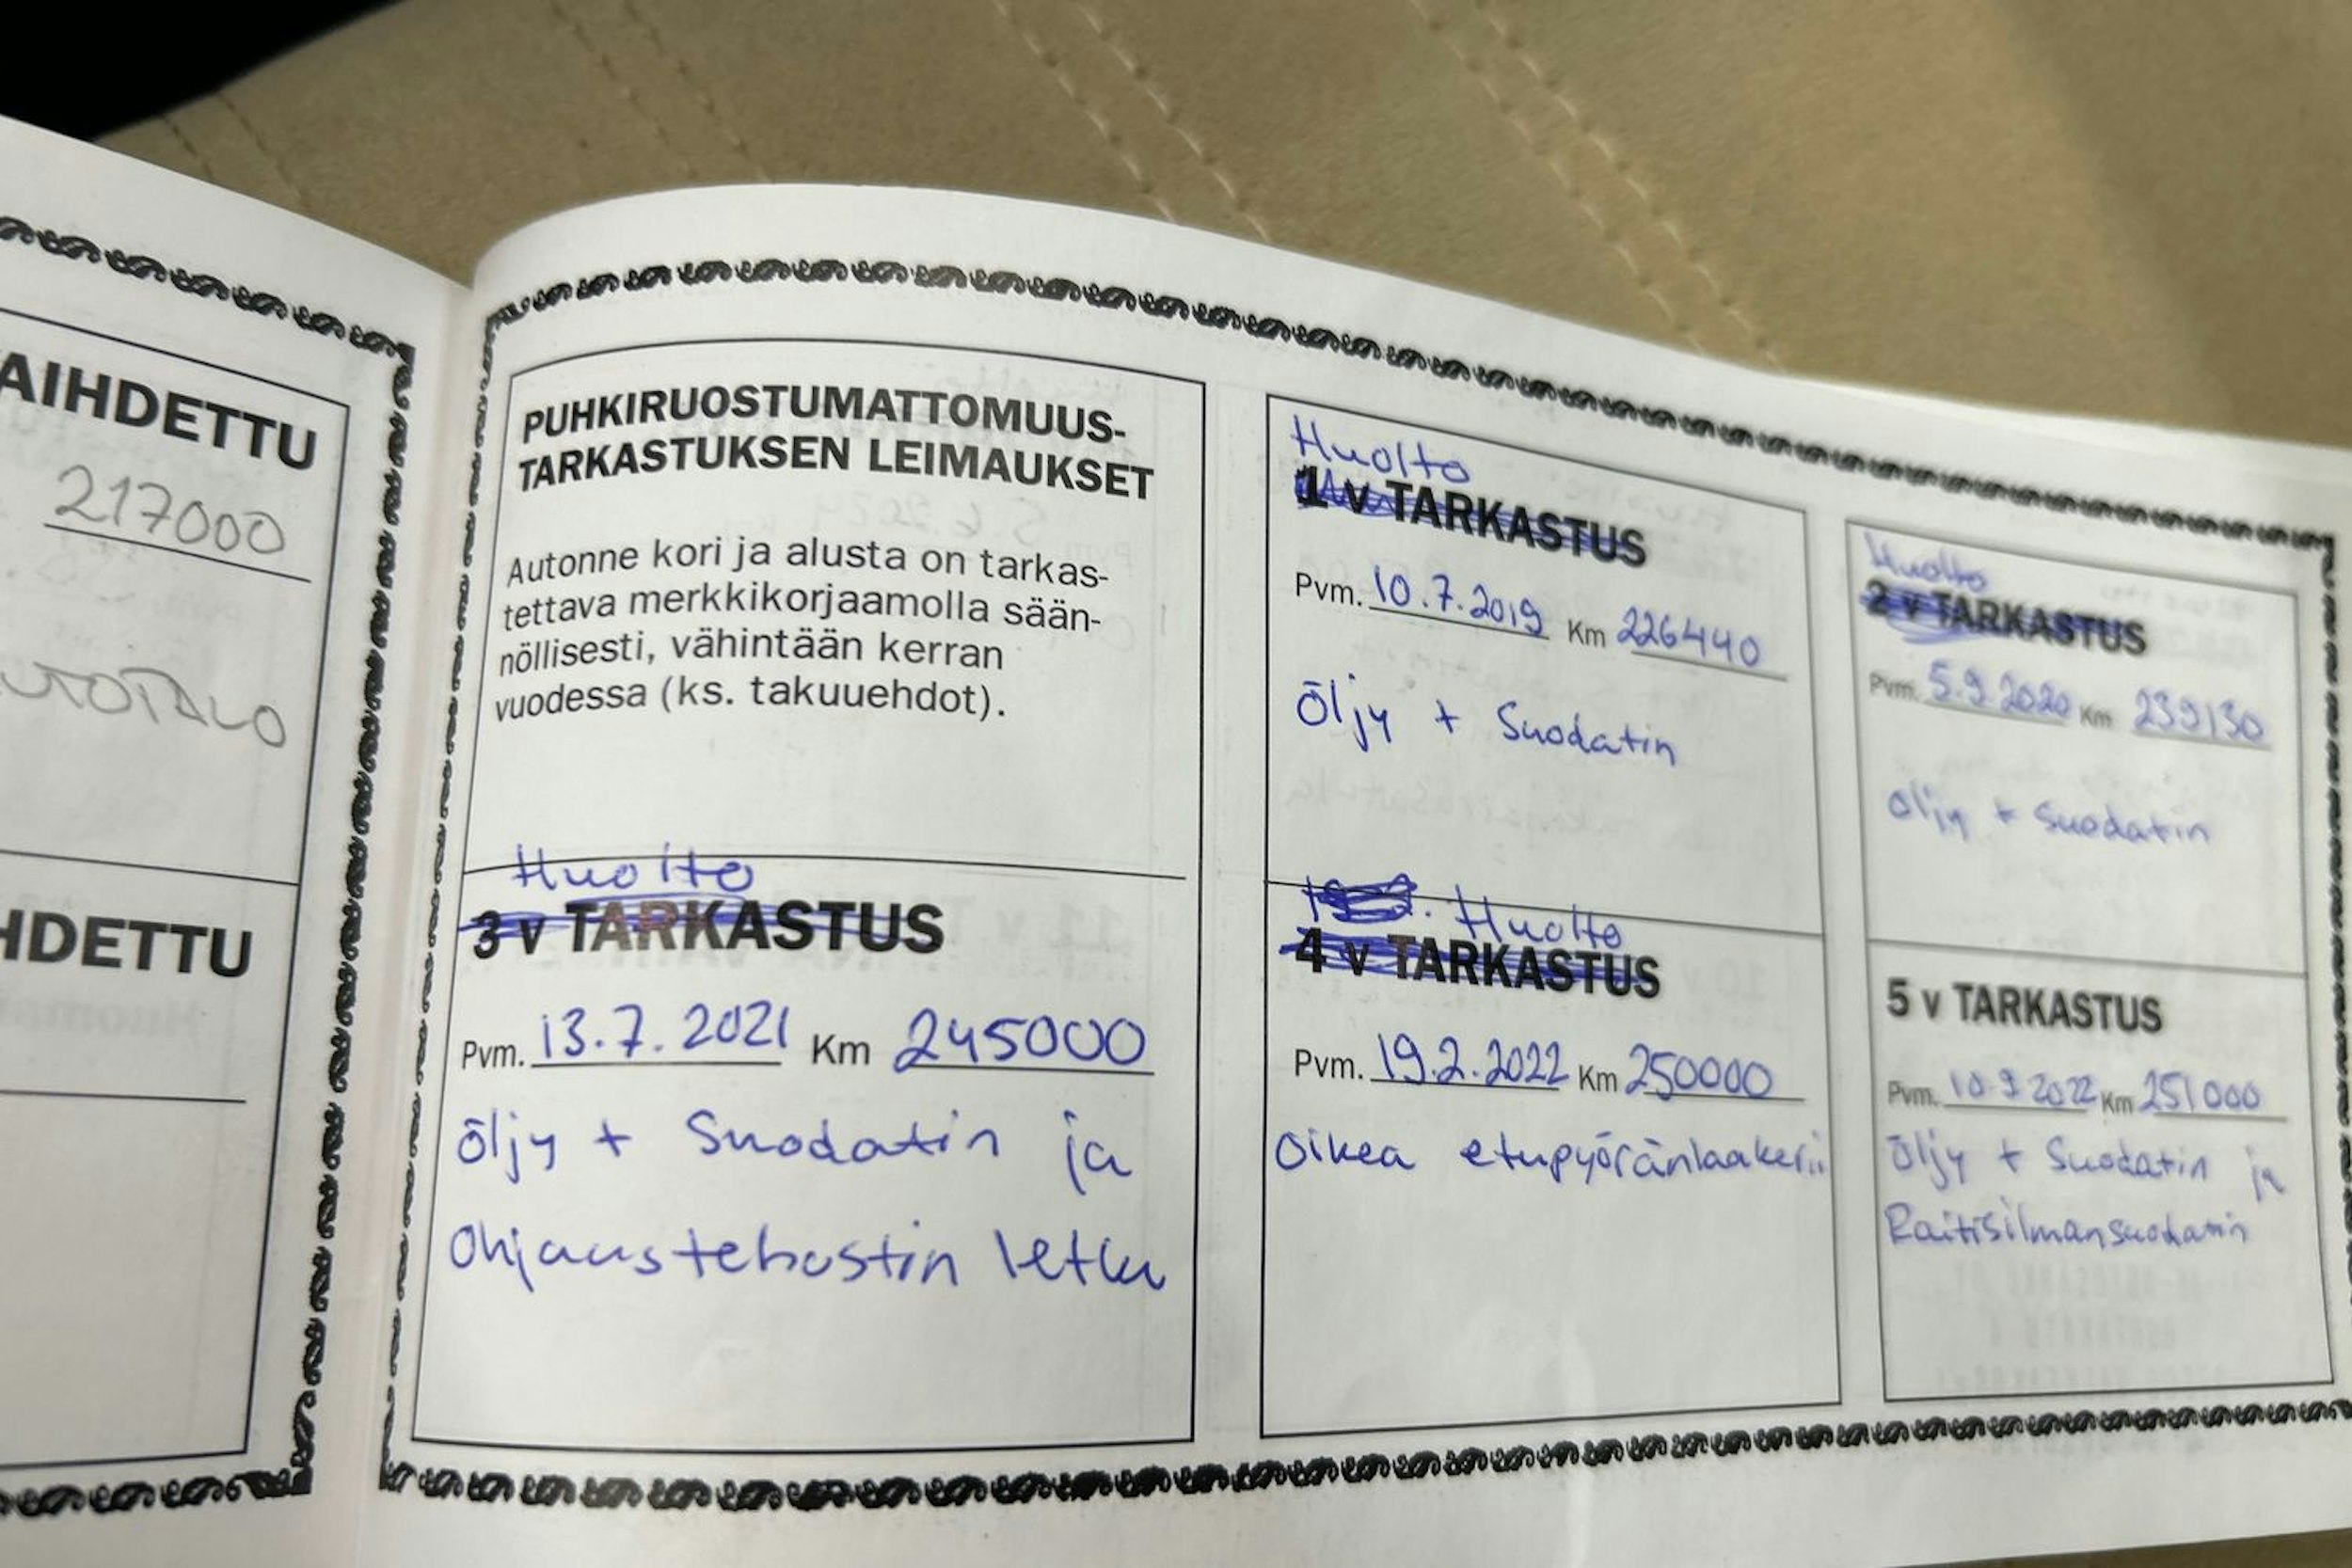 AIHDETTU
217000
UTOTALO
HDETTU
PUHKIRUOSTUMATTOMUUS-
TARKASTUKSEN LEIMAUKSET
Autonne kori ja alusta on tarkas-
tettava merkkikorjaamolla sään-
nöllisesti, vähintään kerran
vuodessa (ks. takuuehdot).
Huolto
1 v TARKASTUS
Pvm. 10.7.2019 Km 226440
Öljy + Suodatin
Huolto
2 v TARKASTUS
Pvm. 5.9.2020 Km 239130
Öljy + Suodatin
Huolto
3 v TARKASTUS
Pvm. 13.7.2021 Km 245000
Öljy + Suodatin ja
Ohjaustehostin letku
Huolto
4 v TARKASTUS
Pvm. 19.2.2022 Km 250000
Oikea etupyöränlaakeri
5 v TARKASTUS
Pvm. 10.9.2022 Km 251000
Öljy + Suodatin ja
Raitisilmansuodatin